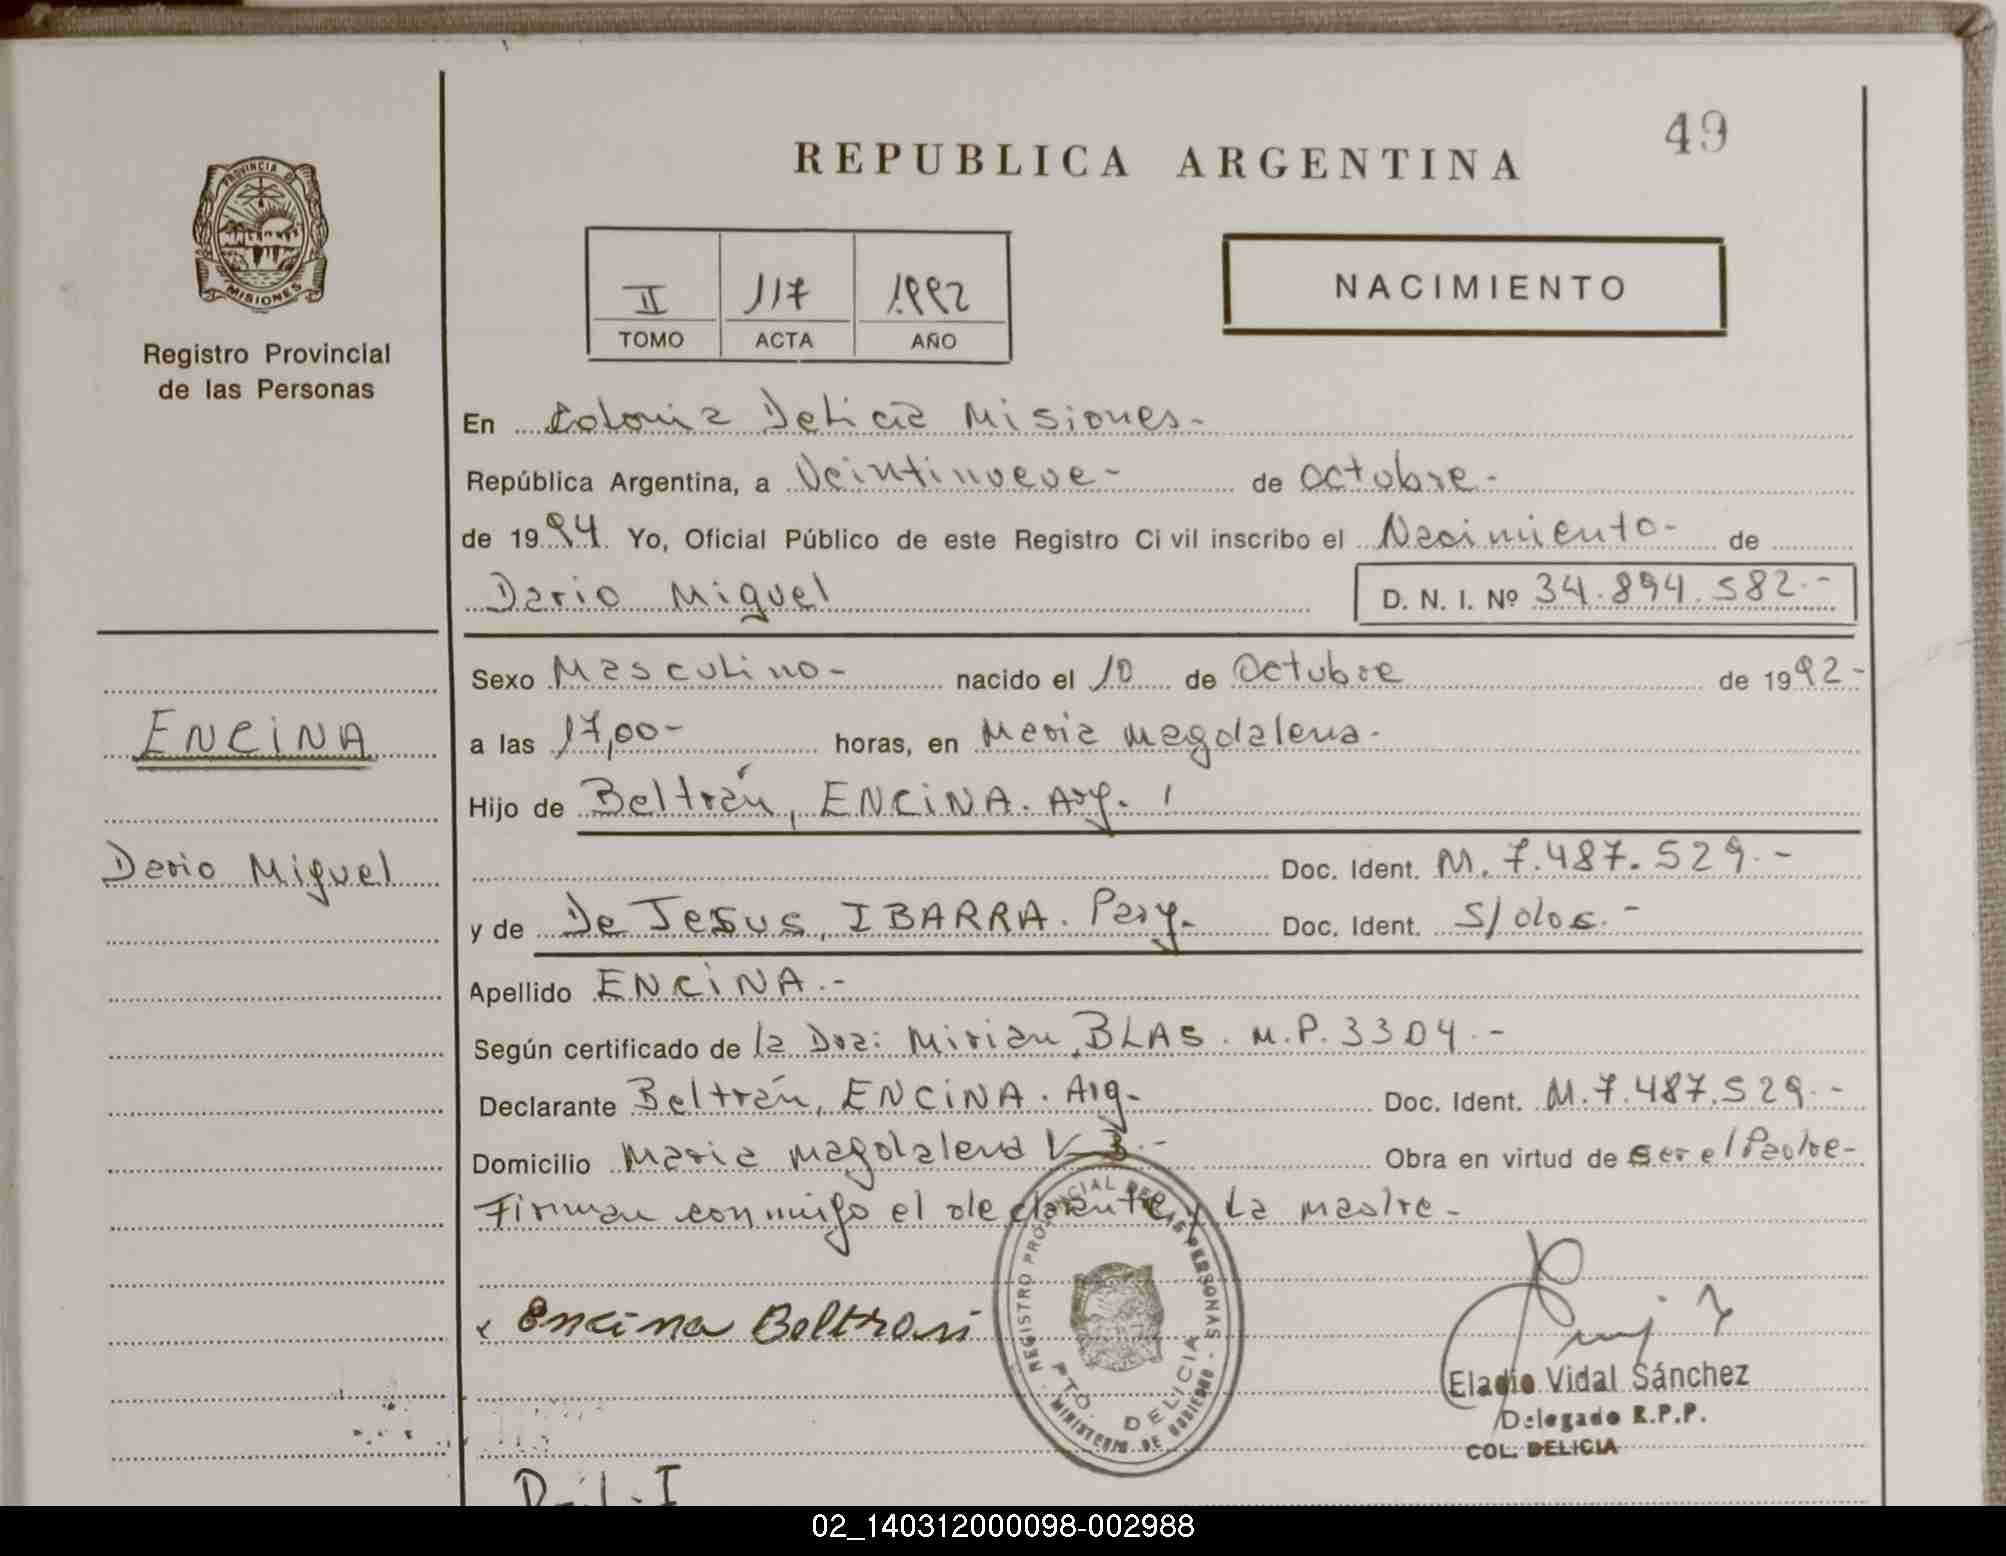 49
REPUBLICA ARGENTINA
PROVINCIA DE
MISIONES
Registro Provincial
de las Personas
II 117 1992
TOMO ACTA AÑO
NACIMIENTO
En Colonia Delicia Misiones.-
República Argentina, a Veintinueve- de octubre.-
de 1994. Yo, Oficial Público de este Registro Civil inscribo el Nacimiento- de
Dario Miguel D. N. I. Nº 34.894.582.-
Sexo Masculino- nacido el 10 de Octubre de 1992-
ENCINA
a las 17,00- horas, en Maria Magdalena.-
Hijo de Beltrán, ENCINA. Arg.
Dario Miguel
Doc. Ident. M. 7.487.529.-
y de De Jesus, IBARRA. Pary.- Doc. Ident. S/doc.-
Apellido ENCINA.-
Según certificado de la Dra: Mirian, BLAS. M.P. 3304.-
Declarante Beltrán, ENCINA. Arg.- Doc. Ident. M.7.487.529.-
Domicilio Maria Magdalena K-3.- Obra en virtud de ser el Padre-
Firman conmigo el declarante y La madre-
REGISTRO PROVINCIAL DE LAS PERSONAS
MINISTERIO DE GOBIERNO
PTO. DELICIA
Encina Beltran
Eladio Vidal Sánchez
Delegado R.P.P.
COL. DELICIA
02_140312000098-002988